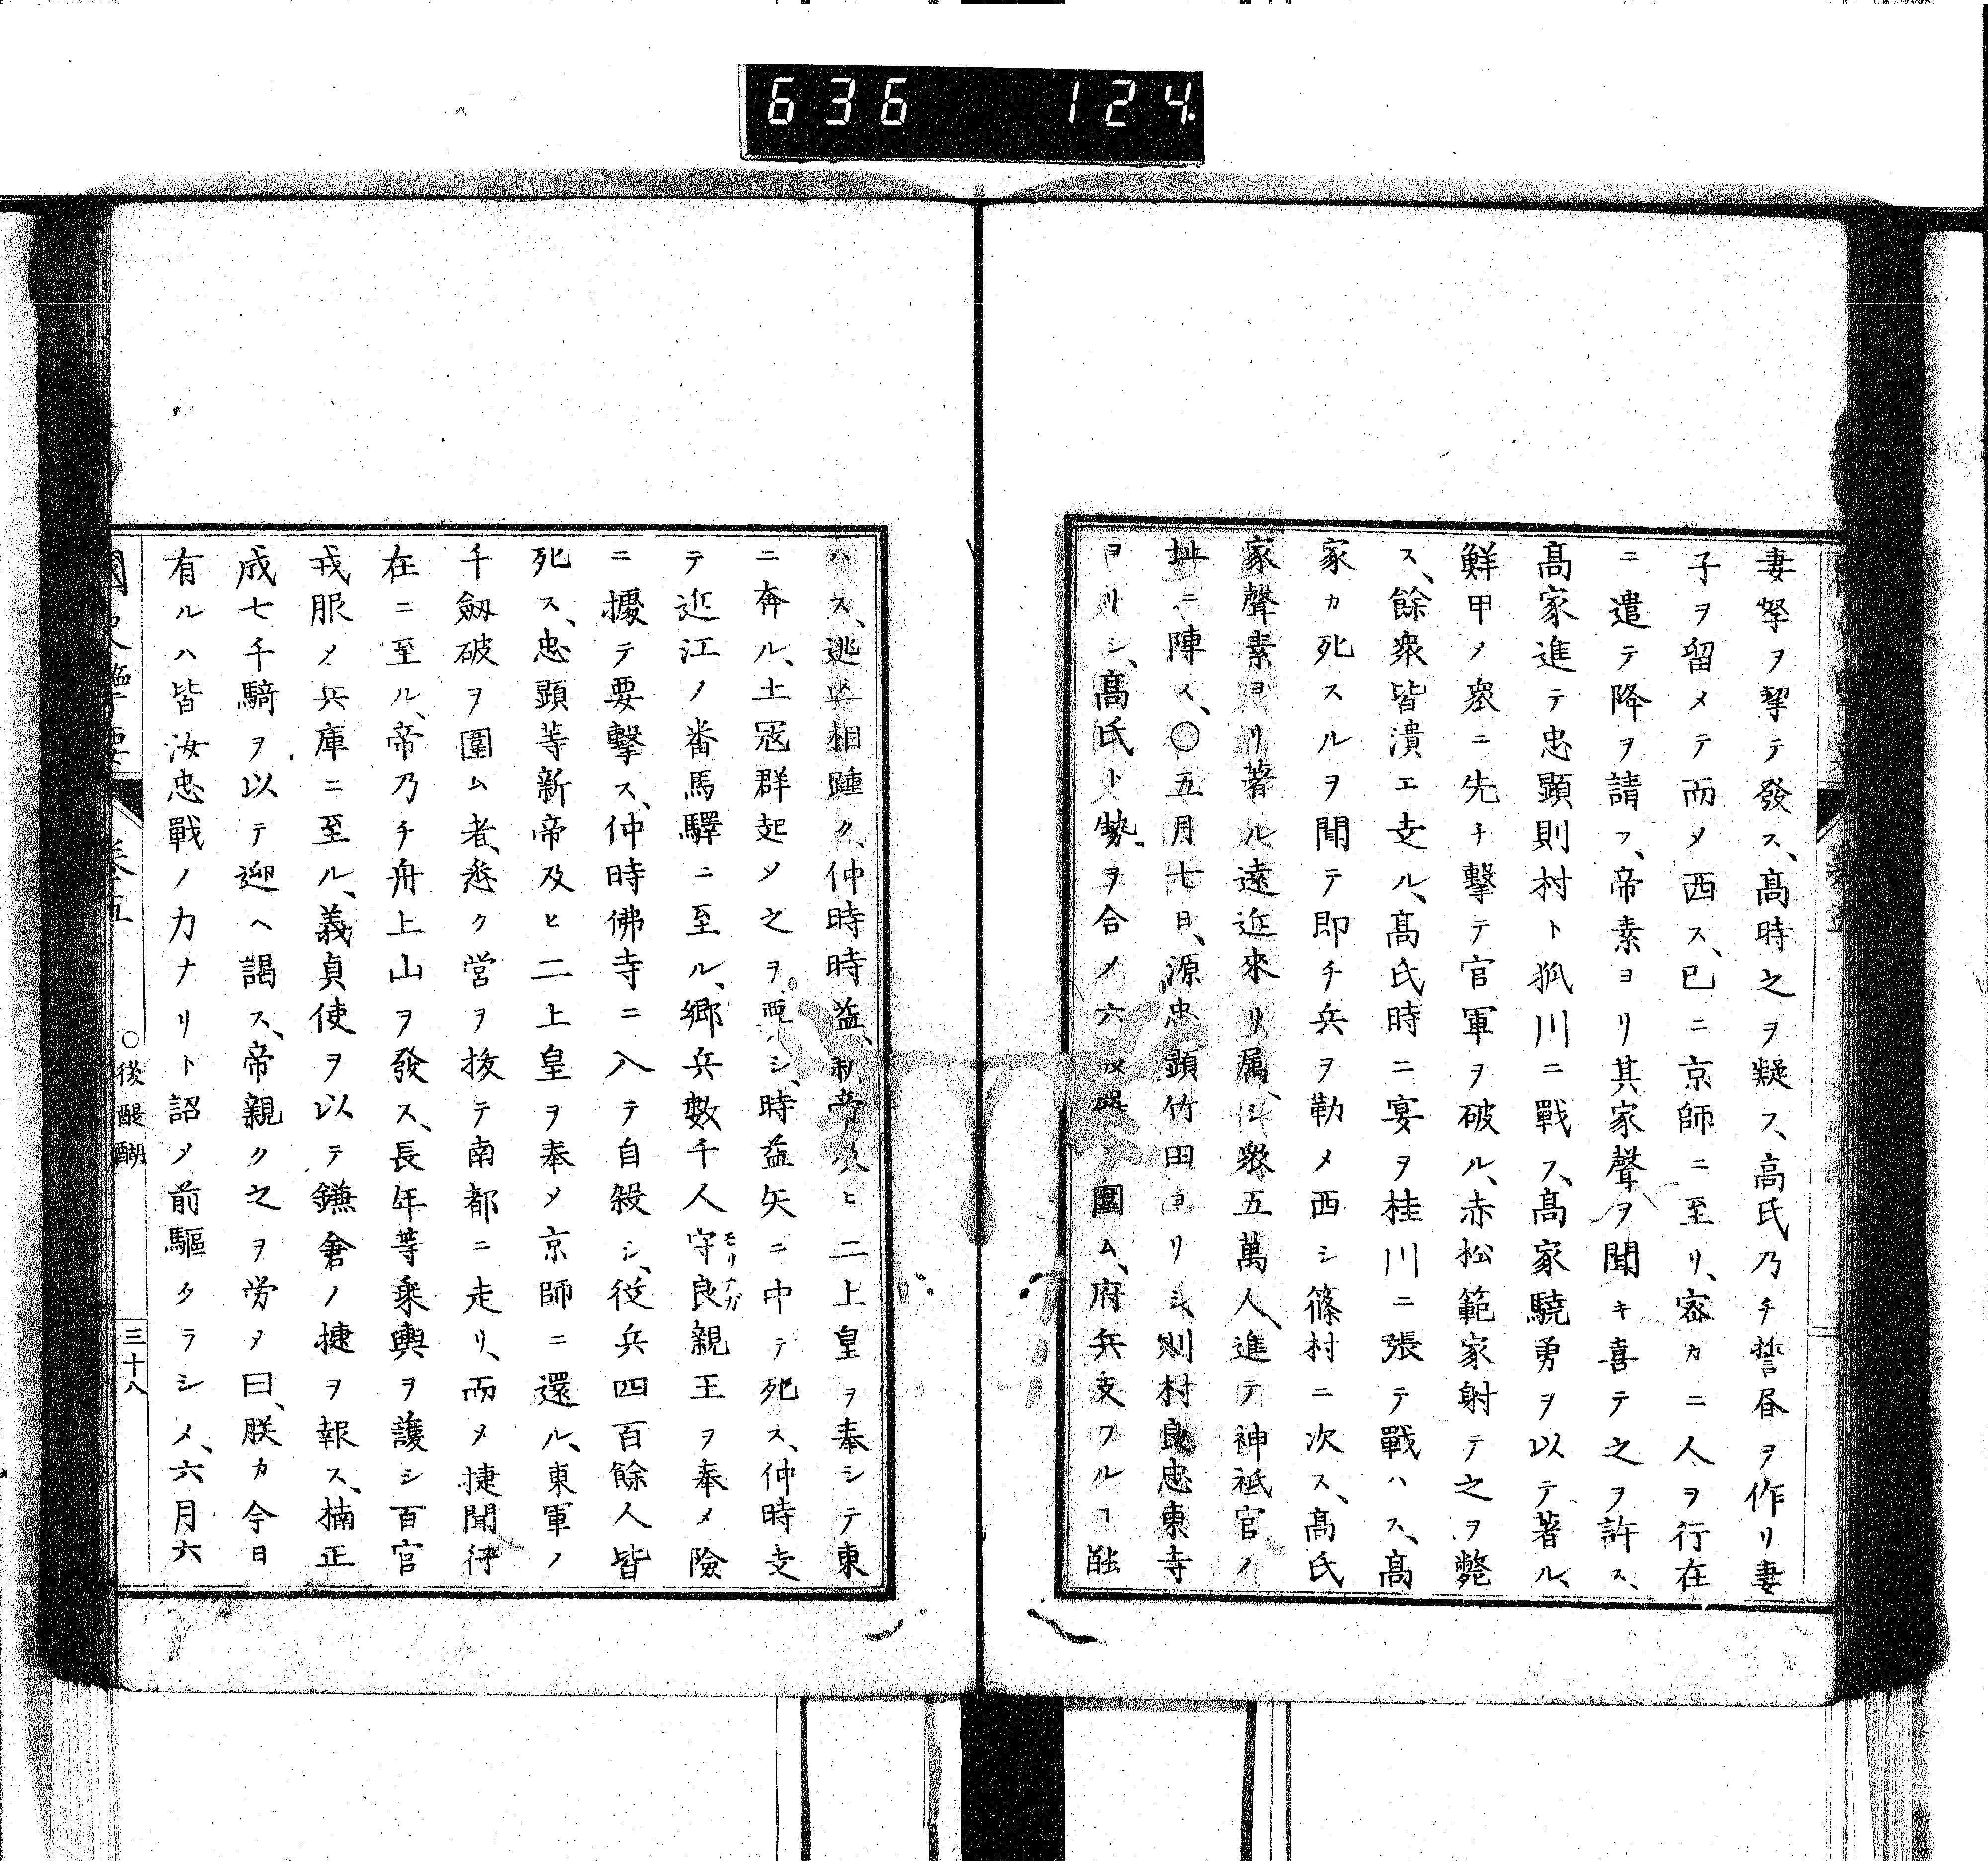 636 124.
妻孥ヲ挈テ發ス、高時之ヲ疑フ、高氏乃チ誓昏ヲ作リ妻
子ヲ留メテ而メ西ス、已ニ京師ニ至リ、密カニ人ヲ行在
ニ遣テ降ヲ請フ、帝素ヨリ其家聲ヲ聞キ喜テ之ヲ許ス、
高家進テ忠顕則村ト狐川ニ戰フ、高家驍勇ヲ以テ著ル、
鮮甲メ衆ニ先チ擊テ官軍ヲ破ル、赤松範家射テ之ヲ斃
ス、餘衆皆潰エ走ル、高氏時ニ宴ヲ桂川ニ張テ戰ハス、高
家カ死スルヲ聞テ即チ兵ヲ勒メ西シ篠村ニ次ス、高氏
家聲素ヨリ著ル遠近來リ属シ衆五萬人、進テ神祗官ノ
址ニ陣ス、〇五月七日、源忠顕竹田ヨリシ、則村良忠東寺
ヨリシ、高氏ト勢ヲ合メ六波羅ヲ圍ム、府兵支フルヿ能
ハス、逃亡相踵ク、仲時時益、新帝及ヒ二上皇ヲ奉シテ東
ニ奔ル、土冦群起メ之ヲ要シ、時益矢ニ中テ死ス、仲時走
テ近江ノ番馬驛ニ至ル、郷兵數千人守良親王ヲ奉メ險
モリナガ
ニ擾テ要擊ス、仲時佛寺ニ入テ自殺シ、從兵四百餘人皆
死ス、忠顕等新帝及ヒ二上皇ヲ奉メ京師ニ還ル、東軍ノ
千劔破ヲ圍ム者、悉ク営ヲ拔テ南都ニ走リ、而メ捷聞行
在ニ至ル、帝乃チ舟上山ヲ發ス、長年等乗輿ヲ護シ百官
戎服メ兵庫ニ至ル、義貞使ヲ以テ鎌倉ノ捷ヲ報ス、楠正
成七千騎ヲ以テ迎ヘ謁ス、帝親ク之ヲ労メ曰、朕カ今日
有ルハ皆汝忠戰ノ力ナリト詔メ前驅タラシメ、六月六
國史 要 卷五 〇後醍醐 三十八